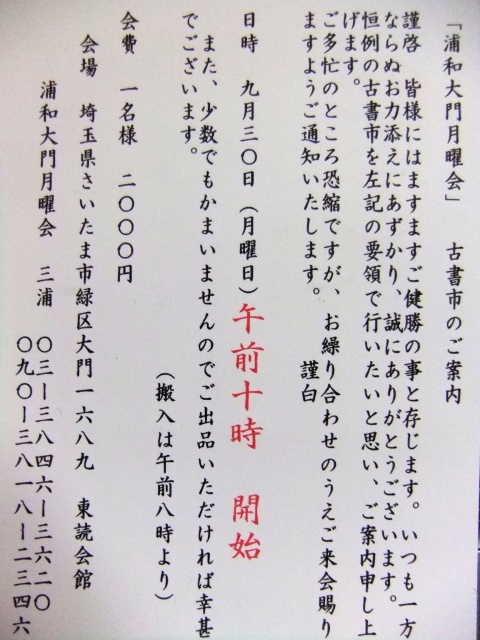 「浦和大門月曜会」　古書市のご案内
謹啓　皆様にはますますご健勝の事と存じます。いつも一方
ならぬお力添えにあずかり、誠にありがとうございます。
恒例の古書市を左記の要領で行いたいと思い、ご案内申し上
げます。
ご多忙のところ恐縮ですが、お繰り合わせのうえご来会賜り
ますようご通知いたします。　　謹白
日時　九月三〇日（月曜日）午前十時　開始
また、少数でもかまいませんのでご出品いただければ幸甚
でございます。
（搬入は午前八時より）
会費　一名様　二〇〇〇円
会場　埼玉県さいたま市緑区大門一六八九　東読会館
浦和大門月曜会　三浦　〇三ー三八四六ー三六二〇
〇九〇ー三八一八ー二三四六